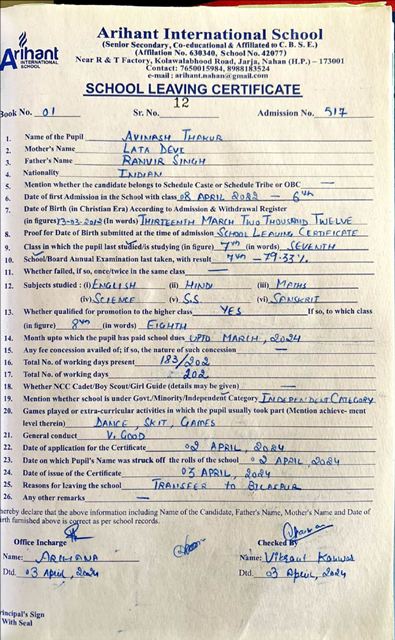 Arihant International School
(Senior Secondary, Co-educational & Affiliated to C. B. S. E.)
(Affiliation No. 630340, School No. 42077)
Near R & T Factory, Kolawalabhood Road, Jarja, Nahan (H.P.) – 173001
Contact: 7650015984, 8988183524
e-mail : arihant.nahan@gmail.com
Arihant
INTERNATIONAL
SCHOOL
SCHOOL LEAVING CERTIFICATE
Book No. 01 Sr. No. 12 Admission No. 517
1. Name of the Pupil AVINASH THAKUR
2. Mother's Name LATA DEVI
3. Father's Name RANVIR SINGH
4. Nationality INDIAN
5. Mention whether the candidate belongs to Schedule Caste or Schedule Tribe or OBC —
6. Date of first Admission in the School with class 08 APRIL 2022 – 6th
7. Date of Birth (in Christian Era) According to Admission & Withdrawal Register
(in figures) 13-03-2012 (In words) THIRTEENTH MARCH TWO THOUSAND TWELVE
8. Proof for Date of Birth submitted at the time of admission SCHOOL LEAVING CERTIFICATE
9. Class in which the pupil last studied/is studying (in figure) 7th (in words) SEVENTH
10. School/Board Annual Examination last taken, with result 7th – 79.33%
11. Whether failed, if so, once/twice in the same class —
12. Subjects studied : (i) ENGLISH (ii) HINDI (iii) MATHS
(iv) SCIENCE (v) S.S. (vi) SANSKRIT
13. Whether qualified for promotion to the higher class YES If so, to which class
(in figure) 8th (in words) EIGHTH
14. Month upto which the pupil has paid school dues UPTO MARCH, 2024
15. Any fee concession availed of; if so, the nature of such concession —
16. Total No. of working days present 183/202
17. Total No. of working days 202
18. Whether NCC Cadet/Boy Scout/Girl Guide (details may be given) —
19. Mention whether school is under Govt./Minority/Independent Category INDEPENDENT CATEGORY
20. Games played or extra-curricular activities in which the pupil usually took part (Mention achieve- ment
level therein) DANCE, SKIT, GAMES
21. General conduct V. GOOD
22. Date of application for the Certificate 02 APRIL, 2024
23. Date on which Pupil's Name was struck off the rolls of the school 02 APRIL, 2024
24. Date of issue of the Certificate 03 APRIL, 2024
25. Reasons for leaving the school TRANSFER to BILASPUR
26. Any other remarks —
hereby declare that the above information including Name of the Candidate, Father's Name, Mother's Name and Date of
irth furnished above is correct as per school records.
Office Incharge Checked By
Name: ARCHANA Name: Vikrant Kanwar
Dtd. 03 April, 2024 Dtd. 03 April, 2024
rincipal's Sign
With Seal